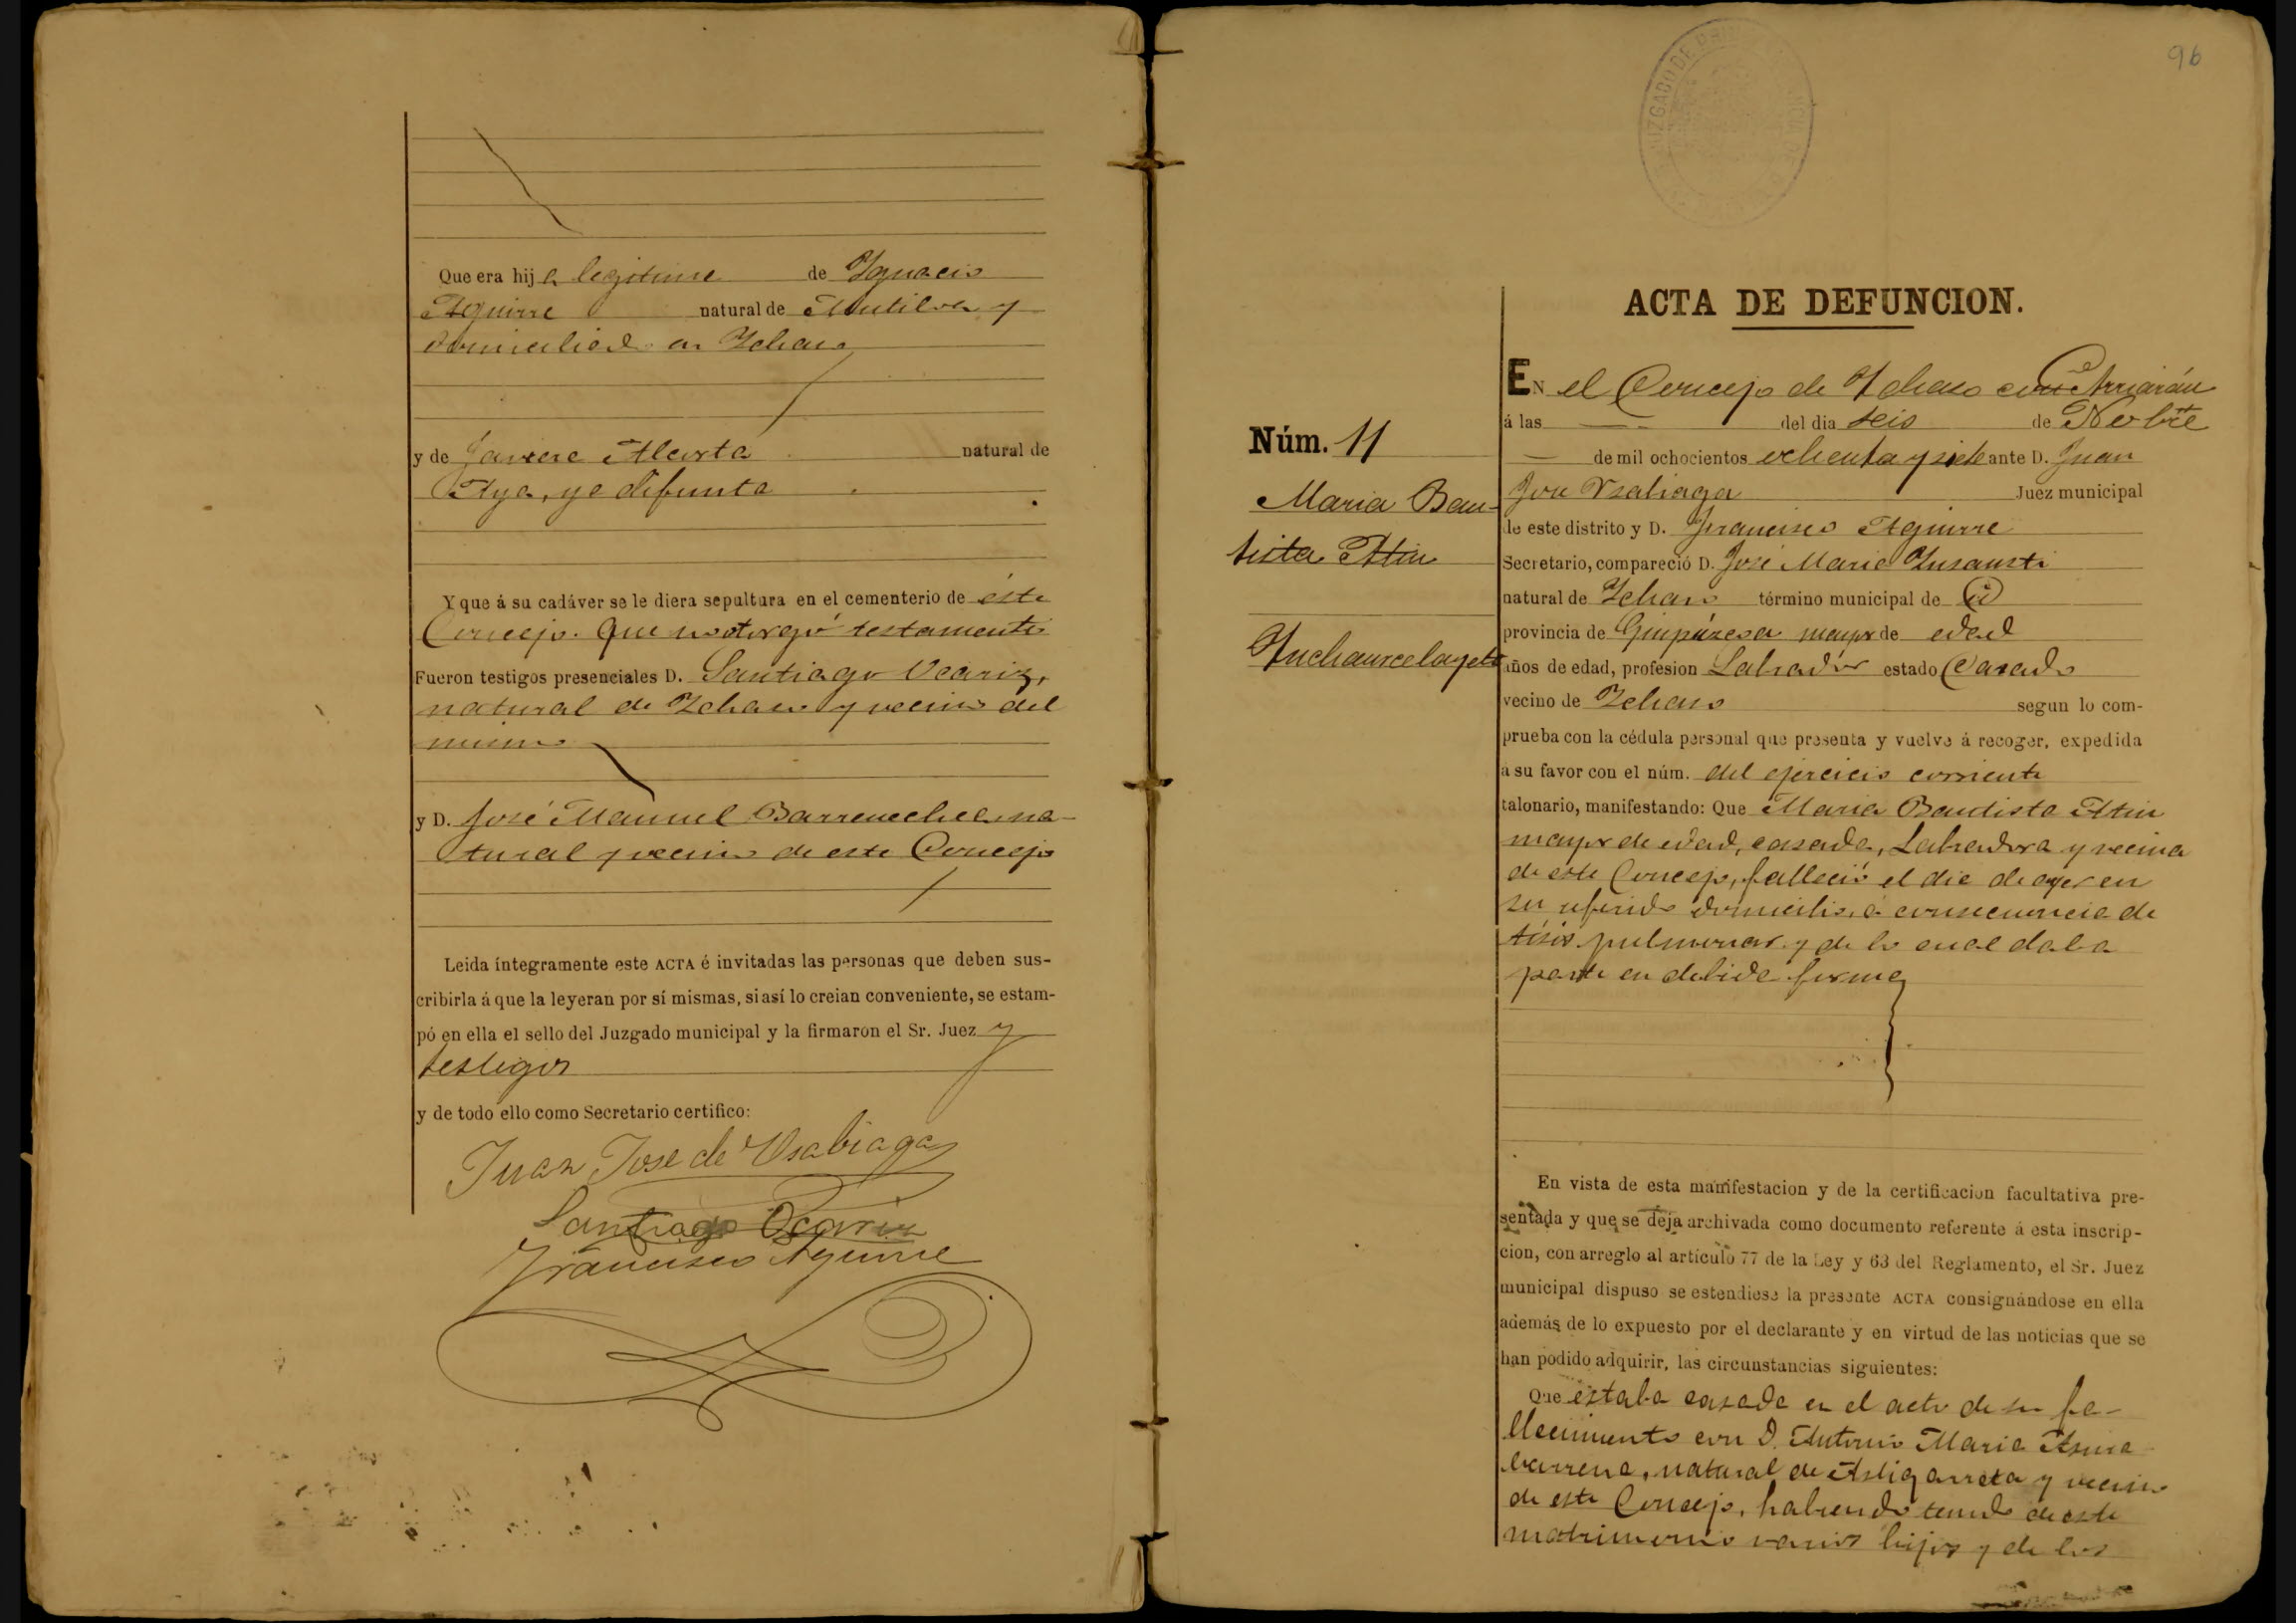 Que era hija legitima de Ygnacio
Aguirre natural de Mutiloa y
domiciliad en Ychaso
y de Javiera Alcorta natural de
Aya, ya difunta
Y que á su cadáver se le diera sepultura en el cementerio de éste
Concejo. Que no otorgó testamento
Fueron testigos presenciales D. Santiago Ocariz,
natural de Ychaso y vecino del
mismo
y D. José Manuel Barrenechea, na-
tural y vecino de este Concejo
Leida íntegramente este ACTA é invitadas las personas que deben sus-
cribirla á que la leyeran por sí mismas, si así lo creian conveniente, se estam-
pó en ella el sello del Juzgado municipal y la firmaron el Sr. Juez y
testigos
y de todo ello como Secretario certifico:
Juan Jose de Usabiaga
Santiago Ocariz
Francisco Aguirre
96
JUZGADO DE
ACTA DE DEFUNCION.
Núm. 11
Maria Bau-
tista Atin
EN el Concejo de Ychaso con Arriarán
á las del dia seis de Nobre
de mil ochocientos ochenta y siete ante D. Juan
Jose Usabiaga Juez municipal
de este distrito y D. Francisco Aguirre
Secretario, compareció D. José Maria Insausti
natural de Ychaso término municipal de id
provincia de Guipúzcoa mayor de edad
años de edad, profesion Labrador estado Casado
vecino de Ychaso segun lo com-
prueba con la cédula personal que presenta y vuelve á recoger, expedida
á su favor con el núm. del ejercicio corriente
talonario, manifestando: Que Maria Bautista Atin
mayor de edad, casada, Labradora y vecina
de este Concejo, falleció el dia de ayer en
su referido domicilio, á consecuencia de
tisis pulmonar y de lo cual daba
parte en debida forma
En vista de esta manifestacion y de la certificacion facultativa pre-
sentada y que se deja archivada como documento referente á esta inscrip-
cion, con arreglo al artículo 77 de la Ley y 63 del Reglamento, el Sr. Juez
municipal dispuso se estendiese la presente ACTA consignándose en ella
además de lo expuesto por el declarante y en virtud de las noticias que se
han podido adquirir, las circunstancias siguientes:
Que estaba casada en el acto de su fa-
llecimiento con D. Antonio Maria
barrena, natural de Astigarreta y vecino
de este Concejo, habiendo tenido de este
matrimonio varios hijos y de los